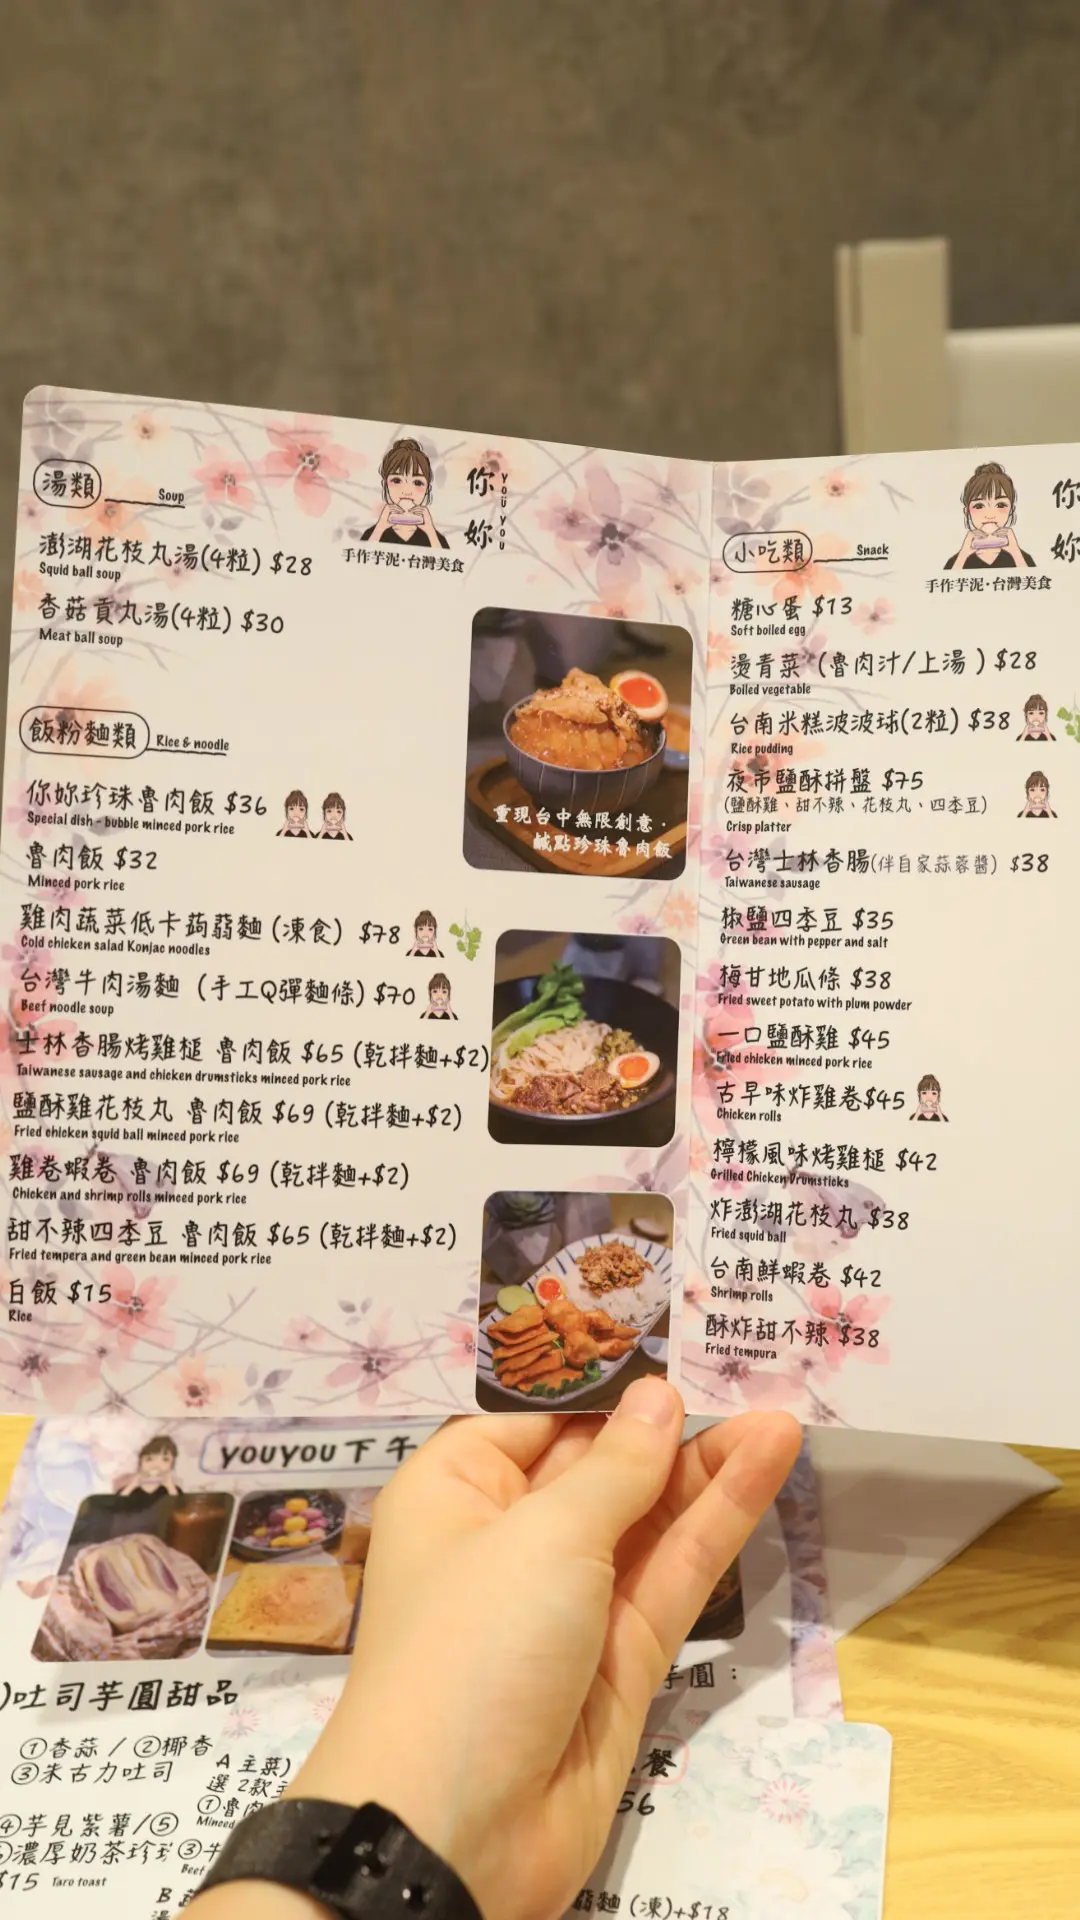 湯類 Soup
你妳 YOU YOU
手作芋泥·台灣美食
澎湖花枝丸湯(4粒) $28
Squid ball soup
香菇貢丸湯(4粒) $30
Meat ball soup
飯粉麵類 Rice & noodle
你妳珍珠魯肉飯 $36
Special dish - bubble minced pork rice
魯肉飯 $32
Minced pork rice
雞肉蔬菜低卡蒟蒻麵 (凍食) $78
Cold chicken salad Konjac noodles
台灣牛肉湯麵 (手工Q彈麵條) $70
Beef noodle soup
士林香腸烤雞槌 魯肉飯 $65 (乾拌麵+$2)
Taiwanese sausage and chicken drumsticks minced pork rice
鹽酥雞花枝丸 魯肉飯 $69 (乾拌麵+$2)
Fried chicken squid ball minced pork rice
雞卷蝦卷 魯肉飯 $69 (乾拌麵+$2)
Chicken and shrimp rolls minced pork rice
甜不辣四季豆 魯肉飯 $65 (乾拌麵+$2)
Fried tempera and green bean minced pork rice
白飯 $15
Rice
重現台中無限創意·
鹹點珍珠魯肉飯
小吃類 Snack
你妳
手作芋泥·台灣美食
糖心蛋 $13
Soft boiled egg
燙青菜 (魯肉汁/上湯) $28
Boiled vegetable
台南米糕波波球(2粒) $38
Rice pudding
夜市鹽酥拼盤 $75
(鹽酥雞、甜不辣、花枝丸、四季豆)
Crisp platter
台灣士林香腸(伴自家蒜蓉醬) $38
Taiwanese sausage
椒鹽四季豆 $35
Green bean with pepper and salt
梅甘地瓜條 $38
Fried sweet potato with plum powder
一口鹽酥雞 $45
Fried chicken minced pork rice
古早味炸雞卷$45
Chicken rolls
檸檬風味烤雞槌 $42
Grilled Chicken Drumsticks
炸澎湖花枝丸 $38
Fried squid ball
台南鮮蝦卷 $42
Shrimp rolls
酥炸甜不辣 $38
Fried tempura
YOUYOU下午
)吐司芋圓甜品
①香蒜 / ②椰香
③朱古力吐司
④芋見紫薯/⑤
濃厚奶茶珍珠
$15 Taro toast
A 主菜)
選 2款主
①魯肉
Minced
③牛
Beef
B
湯
芋圓：
餐
56
蒻麵 (凍)+$18